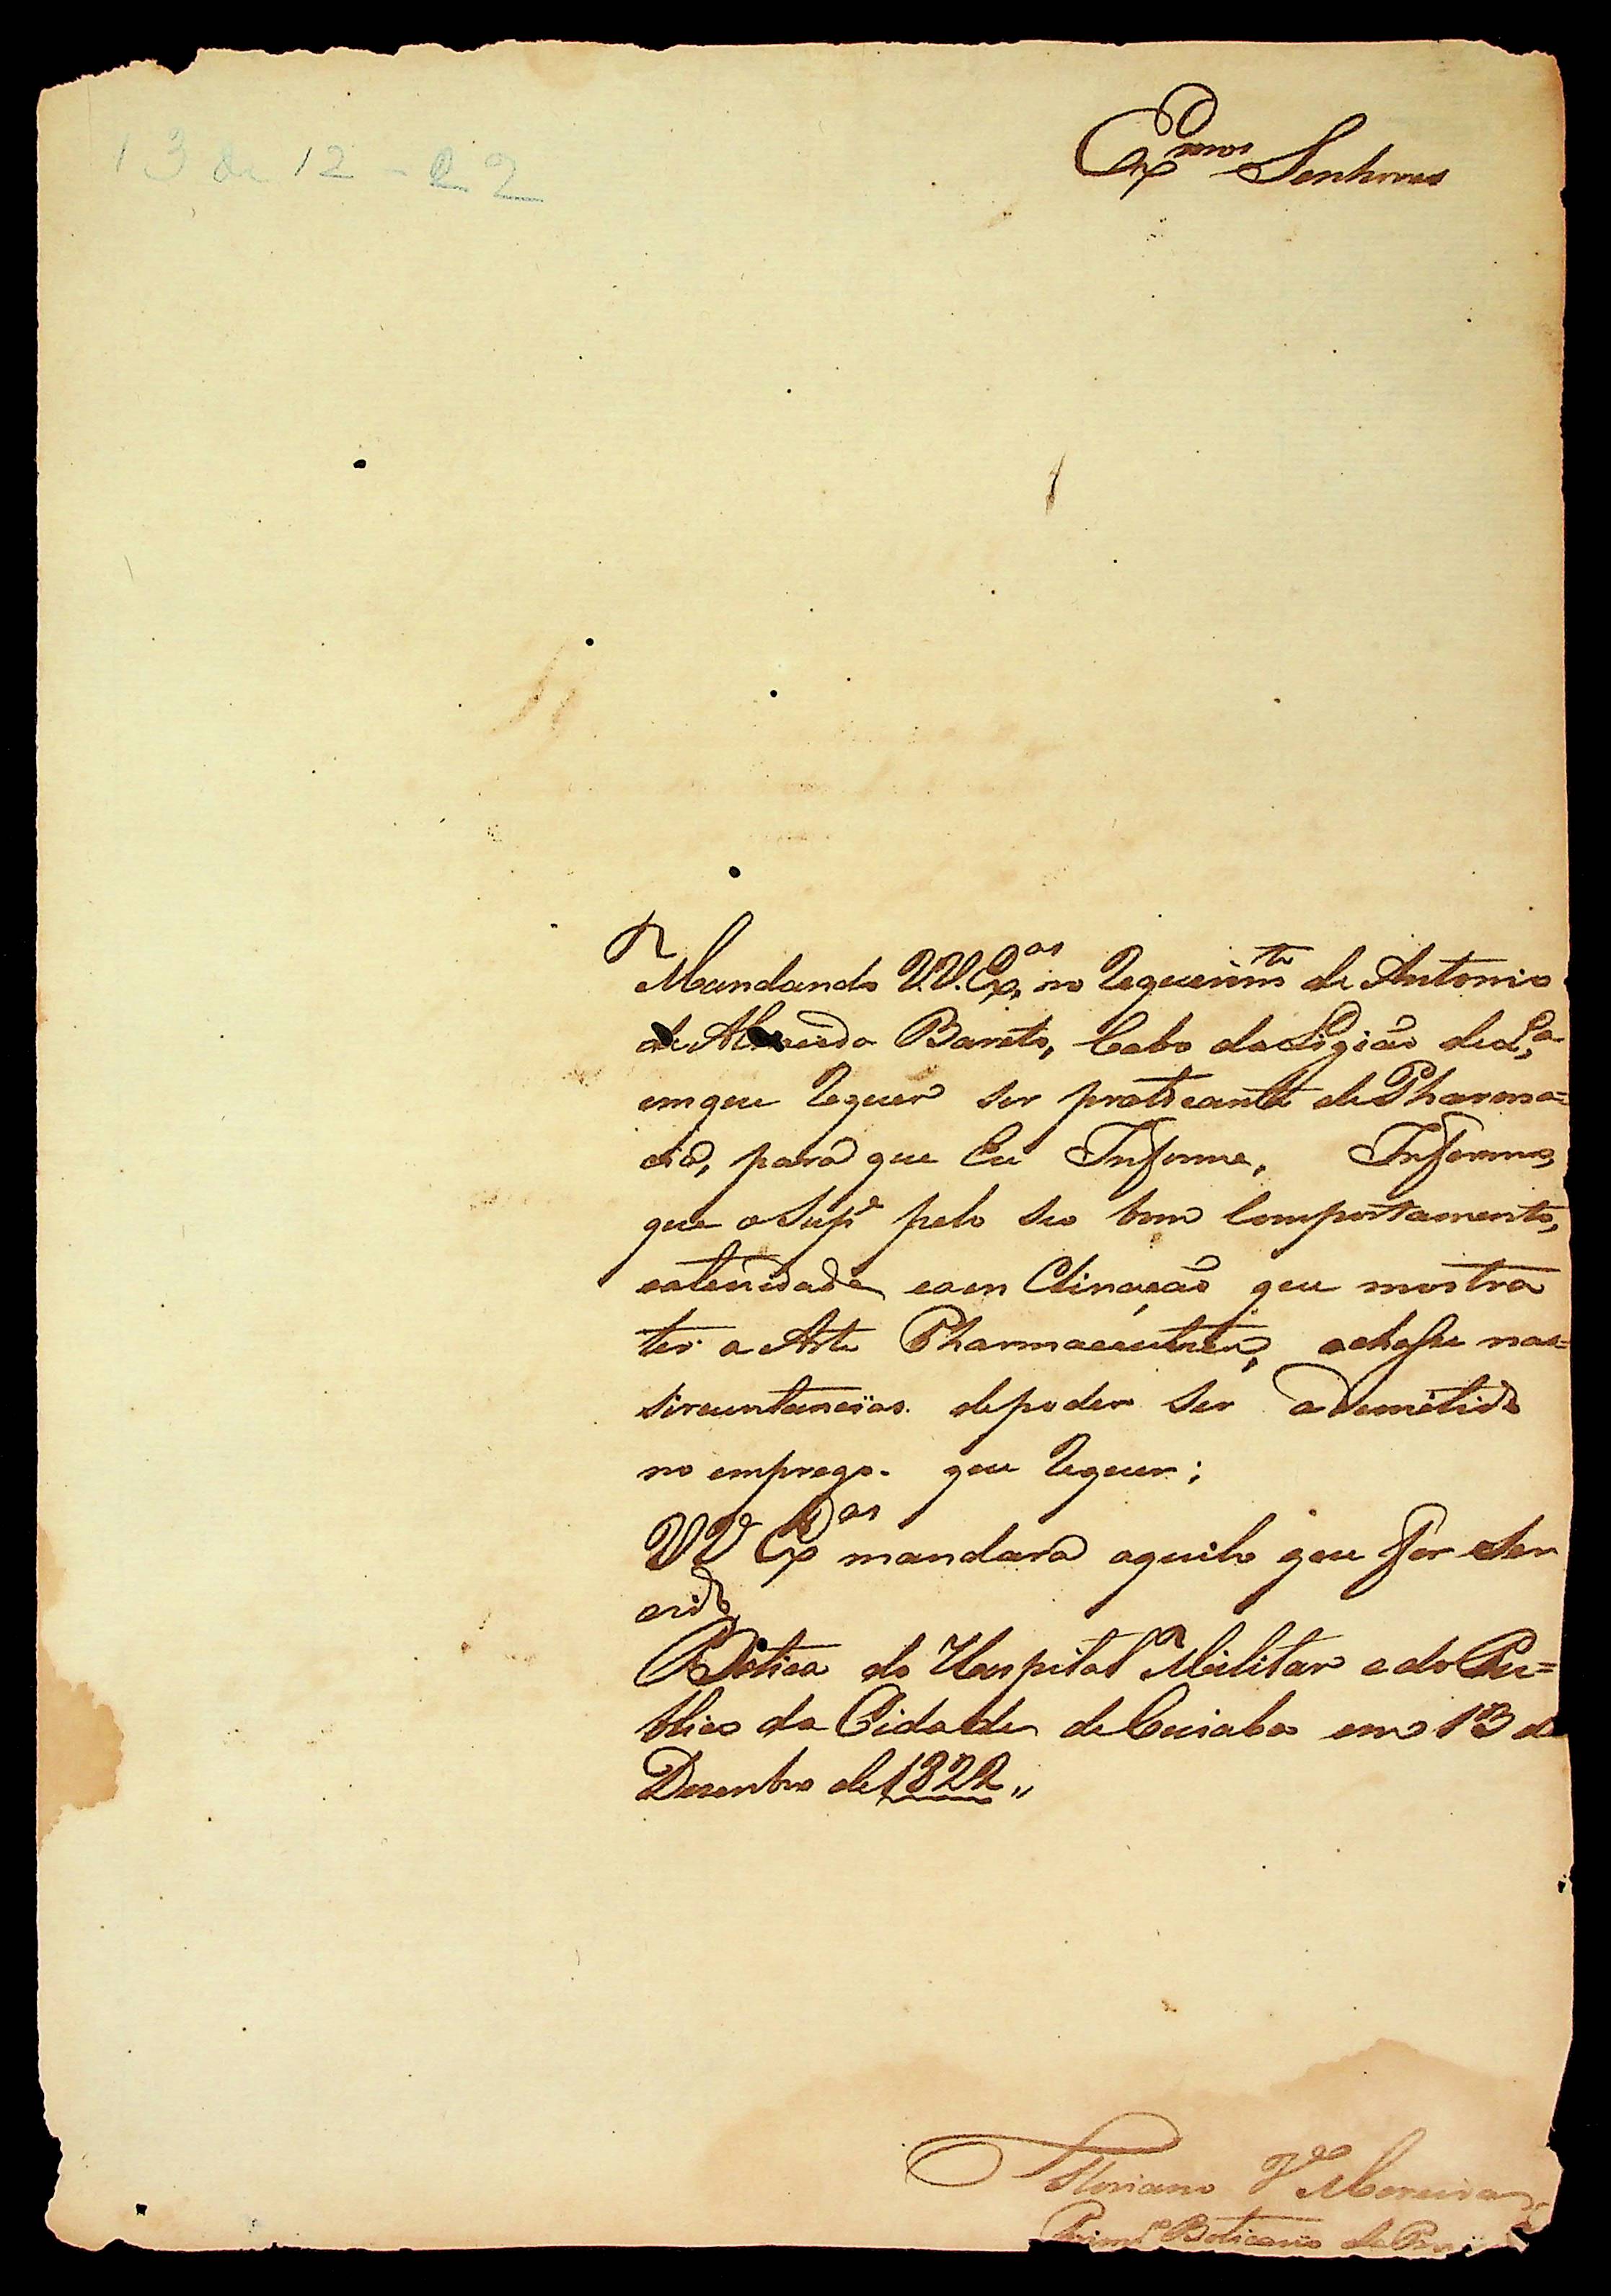 13 de 12 - 22
Exmos Senhores
Mandando V.V. Exas, no Requerimto de Antonio
de Almeida Bareto, Cabo da Ligiaõ de La
em que Requer ser praticante de Pharma=
cia, para que Eu Informe, Informo
que o Supe pelo seo bom Comportamento,
eatenidade eaen Clinaçaõ que mostra
ter a Arte Pharmaceutica, achasse nas=
sircuntancias. depoder ser ademetido
no emprego. que Requer;
VV Exas mandara aquilo que for ser
vido
Botica do Hospital Militar e do Pu=
blico da Cidade de Cuiaba em 13 de
Desenbro de 1822,,
Floriano Va Moreira
Primro Boticario da